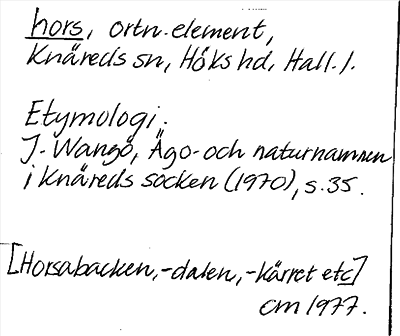 hors, ortn.element,
Knäreds sn, Höks hd, Hall.l.
Etymologi.
J. Wangö, Ägo- och naturnamnen
i Knäreds socken (1970), s. 35.
[Horsabacken, -dalen, -kärret etc]
cm 1977.